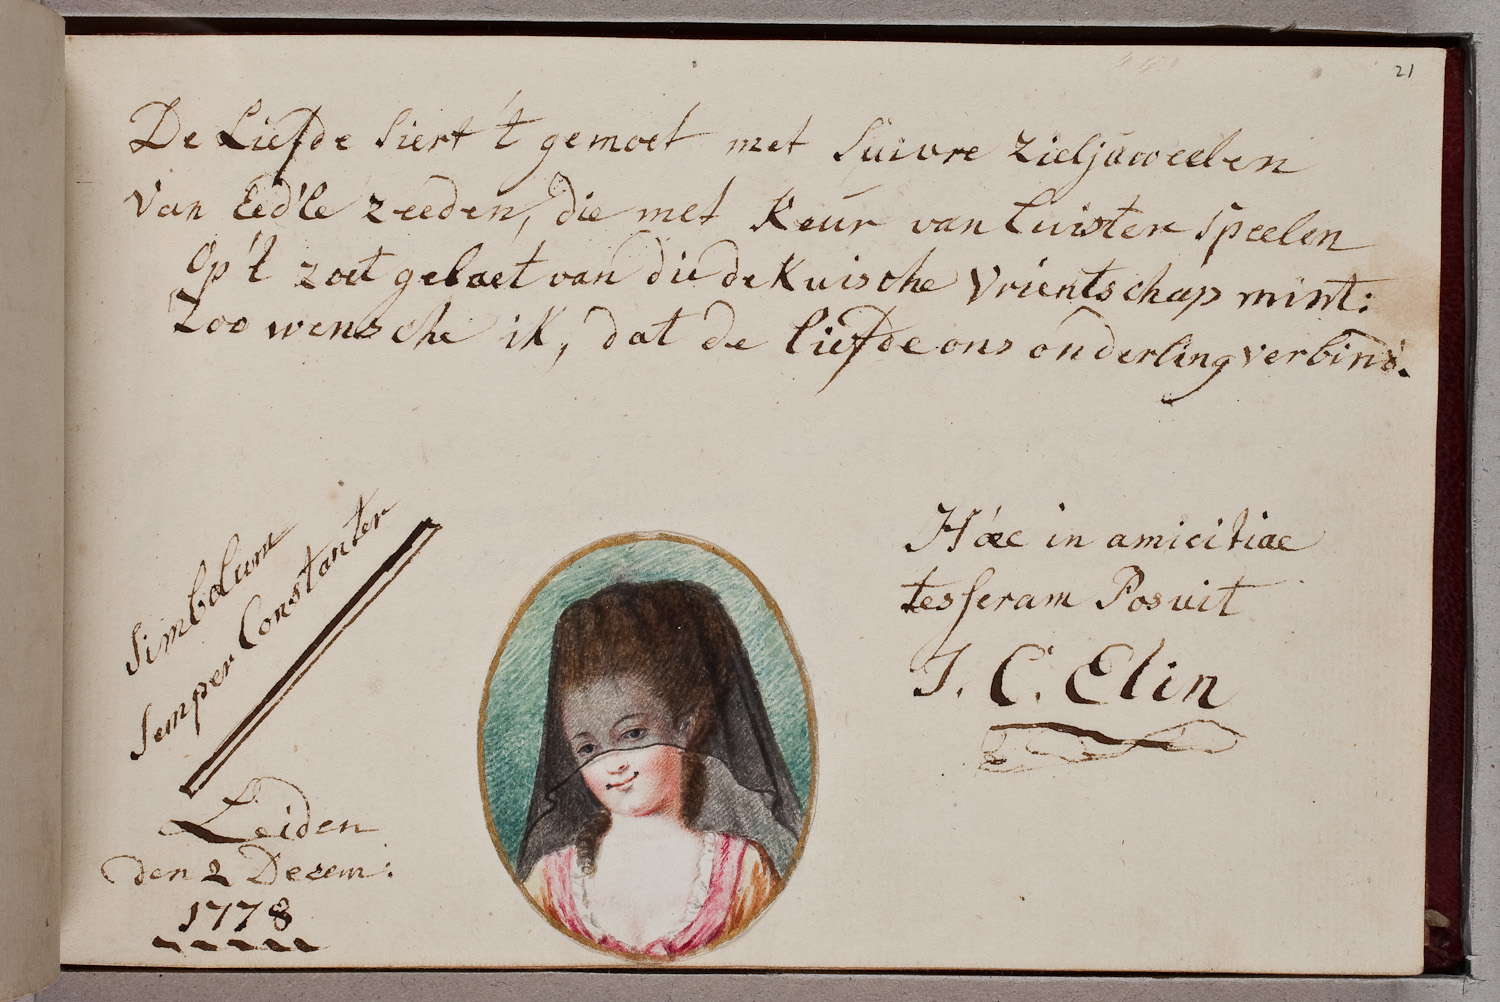 21
De Liefde siert 't gemoet met suivre zieljuweelen
Van Eed'le zeeden, die met Keur van luister speelen
Op 't zoet gelaet van die de Kuische Vrientschap mint:
Zoo wensche ik, dat de liefde ons onderling verbind.
Simbolum
Semper Constanter
Leiden
den 2 Dezem:
1778
Hæc in amicitiae
tesseram Posuit
J. C. Elin